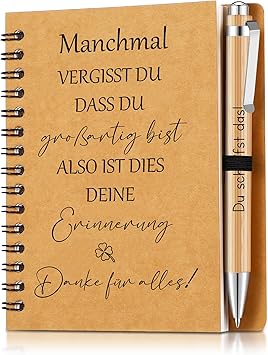 Manchmal
VERGISST DU
DASS DU
großartig bist
ALSO IST DIES
DEINE
Erinnerung
Danke für alles!
Du schaffst das!